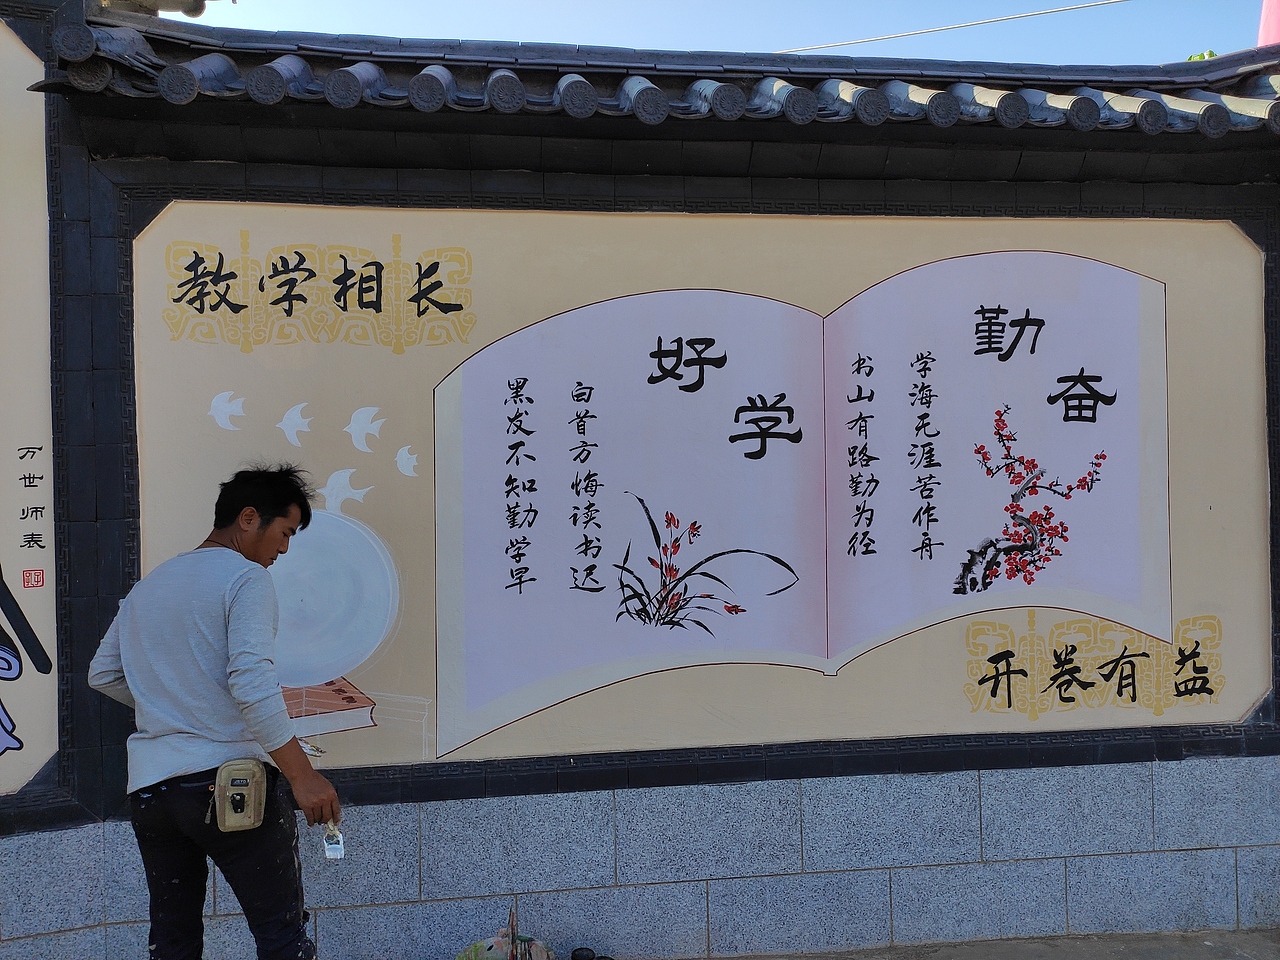 教学相长
好学
黑发不知勤学早
白首方悔读书迟
勤奋
书山有路勤为径
学海无涯苦作舟
开卷有益
万世师表